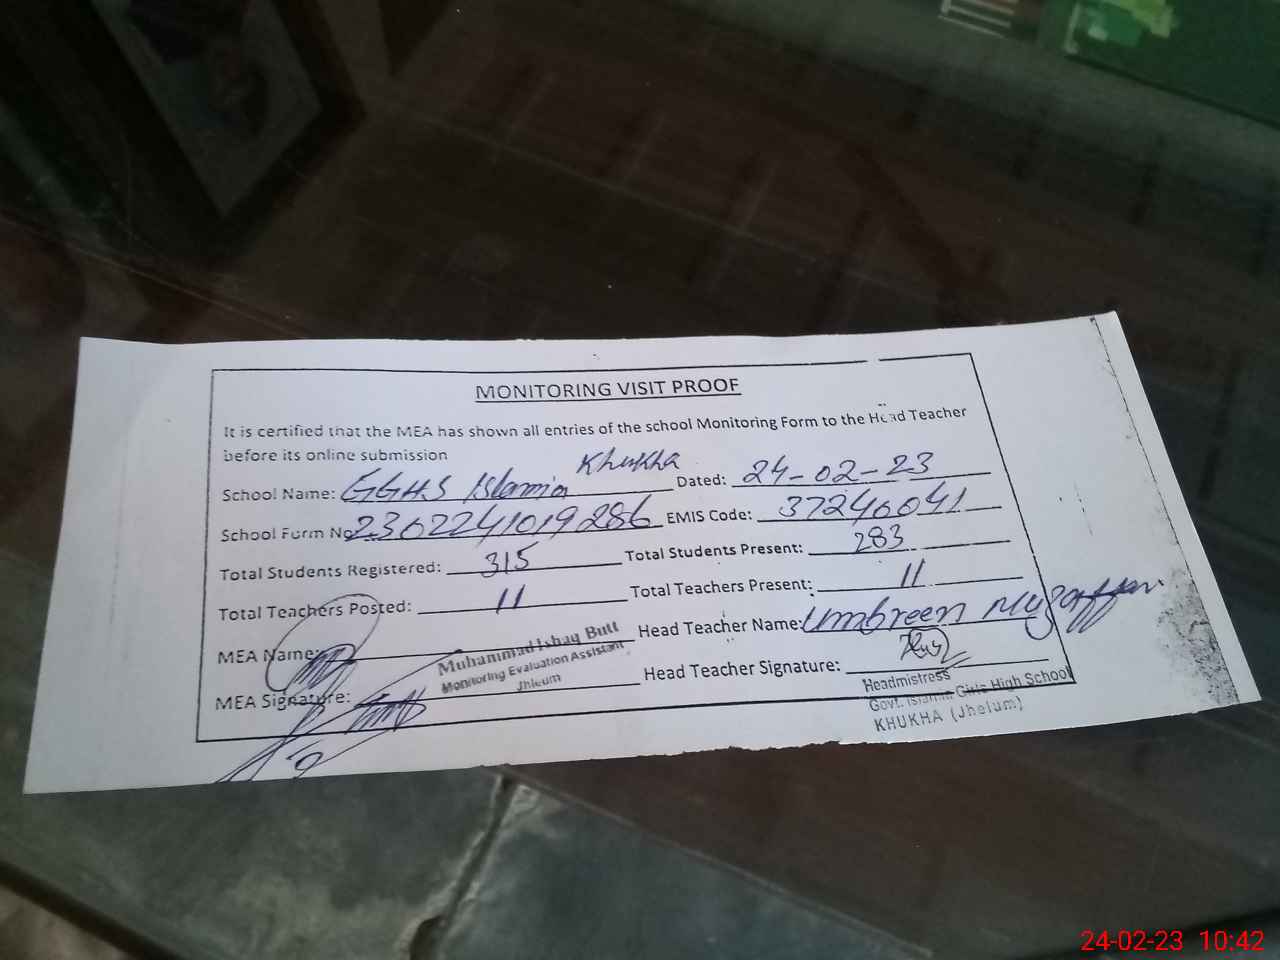 MONITORING VISIT PROOF
It is certified that the MEA has shown all entries of the school Monitoring Form to the Head Teacher
before its online submission
School Name: GGHS Islamia Khukha Dated: 24-02-23
School Form No 2302241019286 EMIS Code: 37240041
Total Students Registered: 315 Total Students Present: 283
Total Teachers Posted: 11 Total Teachers Present: 11
MEA Name: Head Teacher Name: Umbreen Muzaffar
Muhammad Ishaq Butt
Monitoring Evaluation Assistant
Jhleum
MEA Signature: Head Teacher Signature:
Headmistress
Govt. Islamia Girls High School
KHUKHA (Jhelum)
24-02-23 10:42